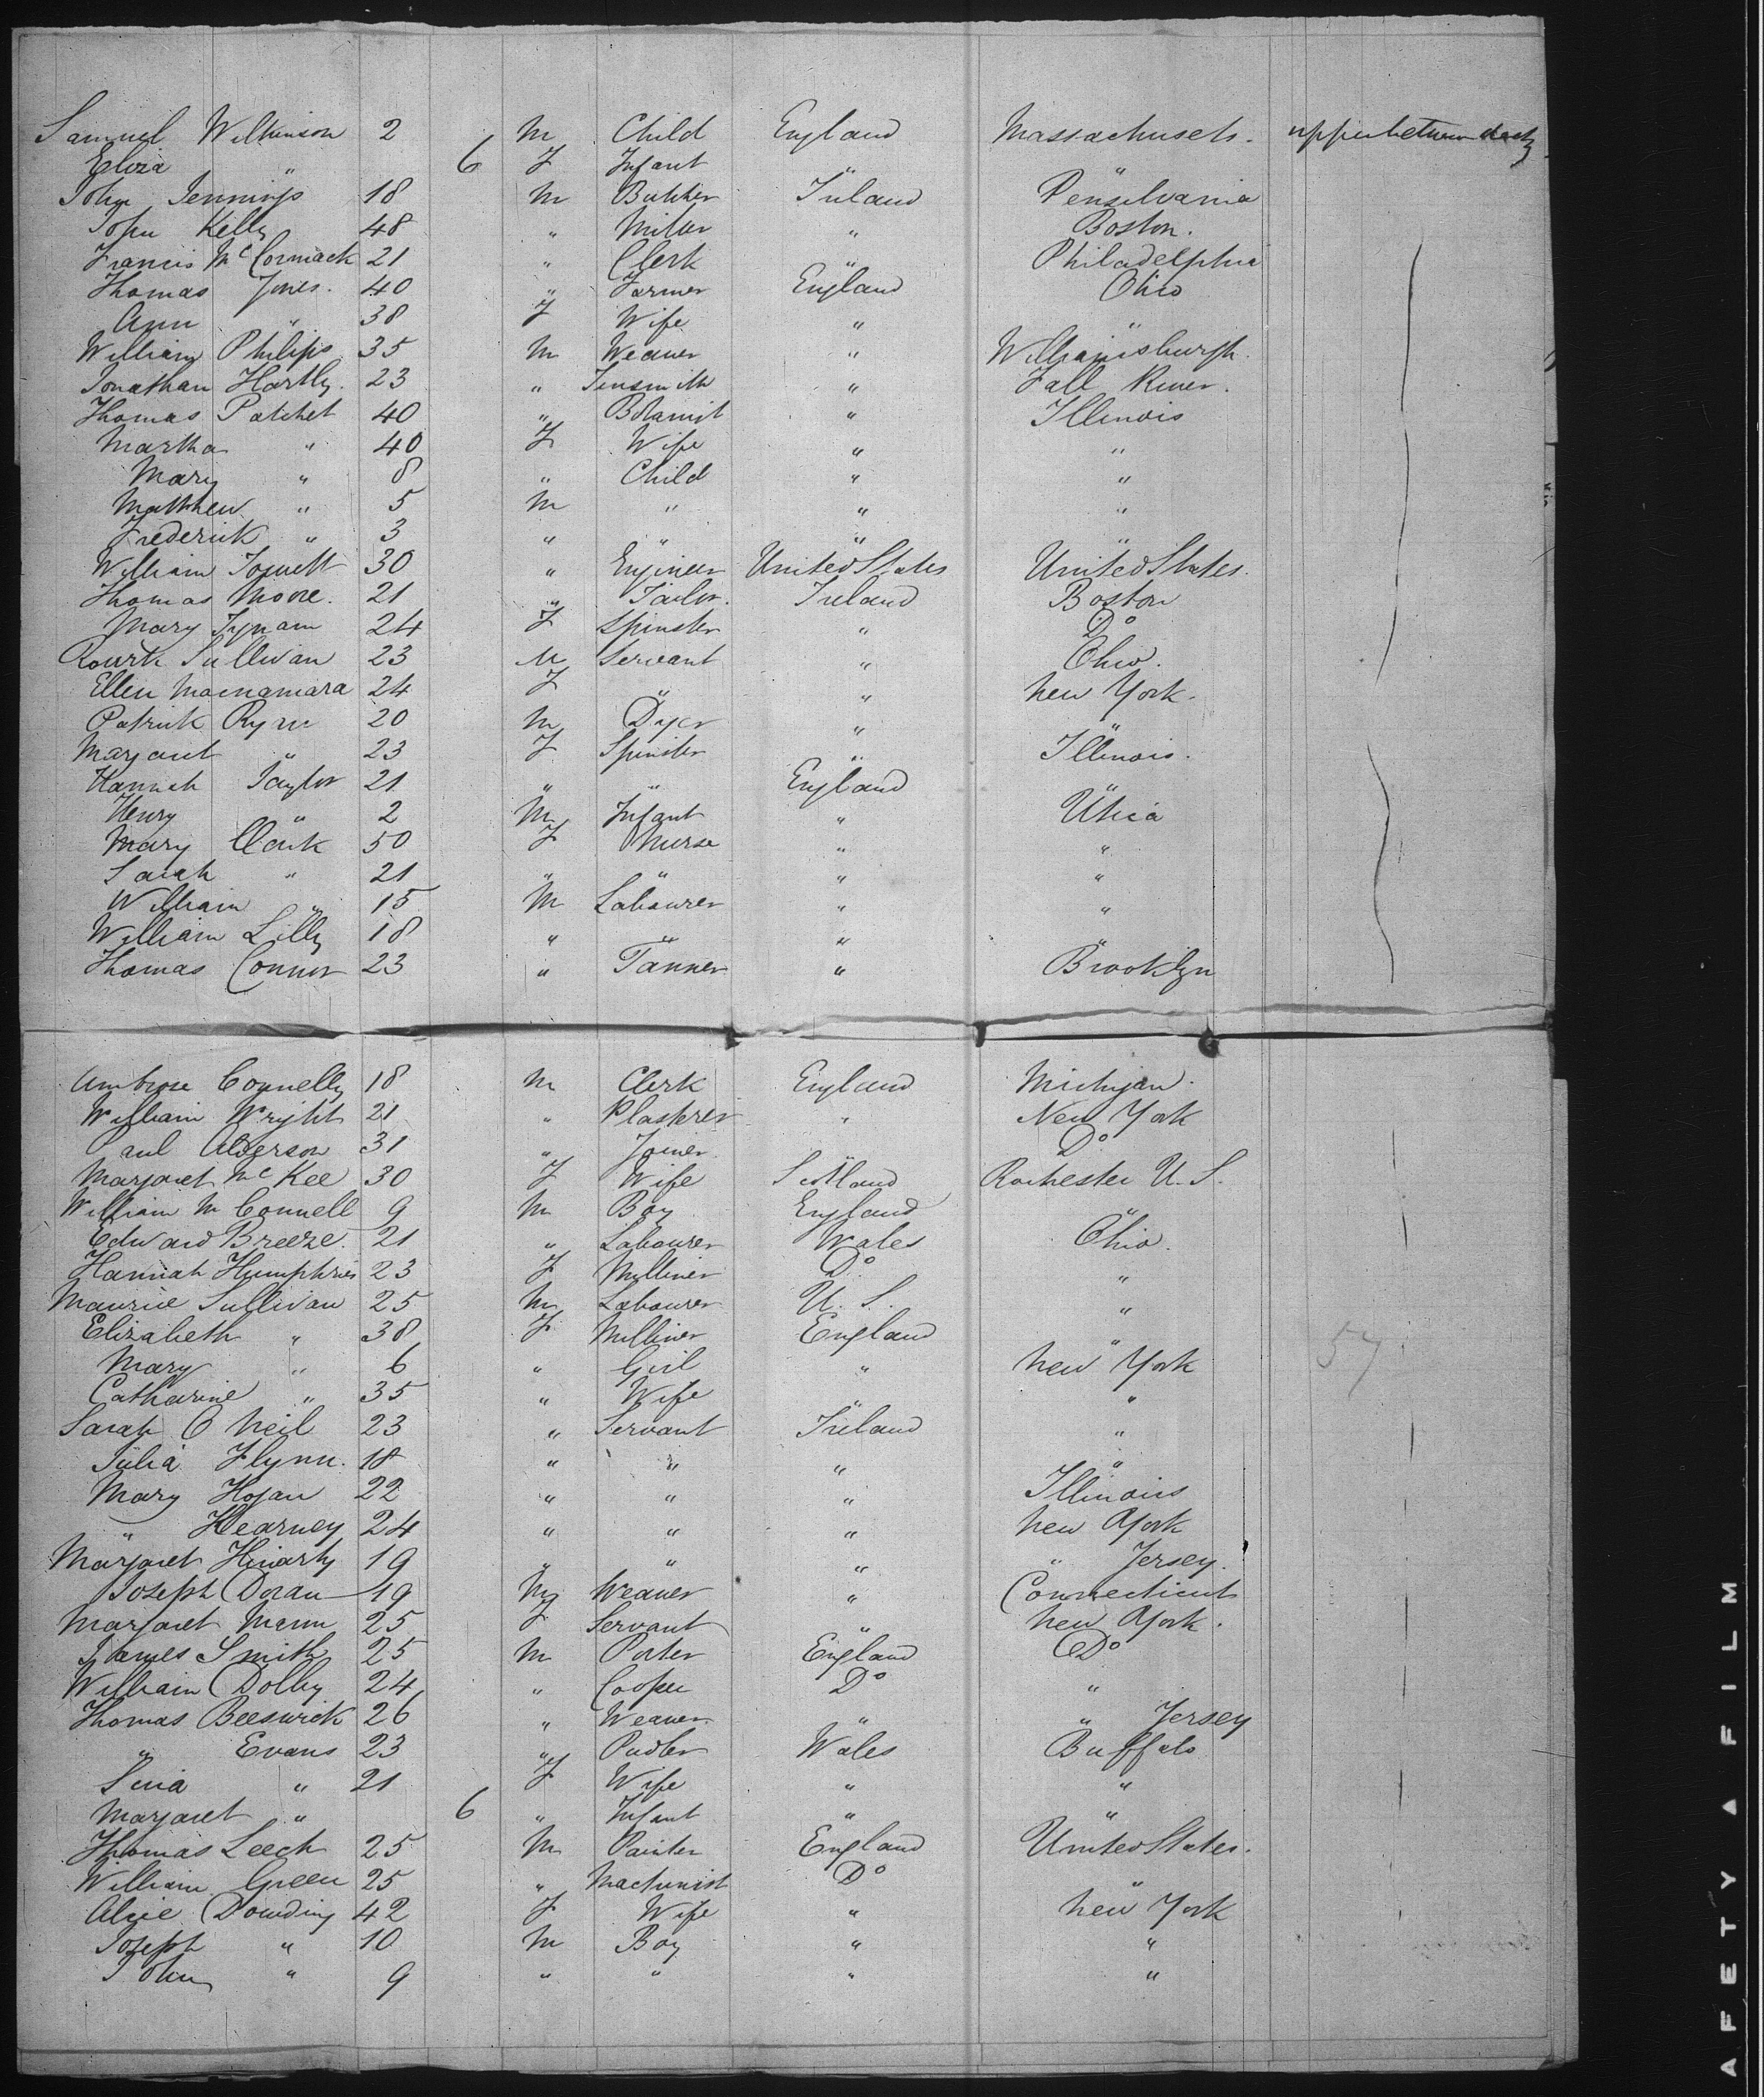 Samuel Wilkinson 2 M Child England Massachusets. upper between decks
Eliza " 6 F Infant " "
John Jennings 18 M Butcher Ireland Pensilvania
John Kelly 48 " Miller " Boston.
Francis McCormack 21 " Clerk " Philadelphia
Thomas Jones. 40 " Farmer England Ohio
Ann " 38 F Wife " "
William Philips 35 M Weaver " Williamsburgh.
Jonathan Hartly. 23 " Tinsmith " Fall River.
Thomas Patchet 40 " Botanist " Illinois
Martha " 40 F Wife " "
Mary " 8 " Child " "
Matthew " 5 M " " "
Frederick " 3 " " " "
William 30 " Engineer United States United States.
Thomas Moore. 21 " Tailor. Ireland Boston
Mary Tynam 24 F Spinster " Do
Sullivan 23 M Servant " Ohio.
Ellen Macnamara 24 F " " New York.
Patrick Ryne 20 M Dyer " "
Margaret " 23 F Spinster " Illinois.
Hannah Taylor 21 " " England "
Henry " 2 M Infant " Utica
Mary Clark 50 F Nurse " "
Sarah " 21 " " " "
William " 15 M Labourer " "
William Lilly 18 " " " "
Thomas Connor 23 " Tanner " Brooklyn
Ambrose Connelly 18 M Clerk England Michigan.
William Wright 21 " Plasterer " New York
Paul Alderson 31 " Joiner " Do
Margaret McKee 30 F Wife Scotland Rochester U. S.
William McConnell 9 M Boy England "
Edward Breeze. 21 " Labourer Wales Ohio.
Hannah Humphries 23 F Milliner Do "
Maurice Sullivan 25 M Labourer U. S. "
Elizabeth " 38 F Milliner England "
Mary " 6 " Girl " New York 57
Catharine " 35 " Wife " "
Sarah O Neil 23 " Servant Ireland "
Julia Flynn. 18 " " " "
Mary Hogan 22 " " " Illinois
" Kearney 24 " " " New York
Margaret 19 " " " " Jersey.
Joseph Doran 19 M Weaver " Connecticut
Margaret Mann 25 F Servant " New York.
James Smith 25 M Porter England Do
William Dolby 24 " Cooper Do "
Thomas Beeswick 26 " Weaver " " Jersey
" Evans 23 " Pudler Wales Buffalo
" 21 F Wife " "
Margaret " 6 " Infant " "
Thomas Leech 25 M Painter England United States.
William Green 25 " Machinist Do "
Alice Dowding 42 F Wife " New York
Joseph " 10 M Boy " "
John " 9 " " " "
AFETY ▲ FILM